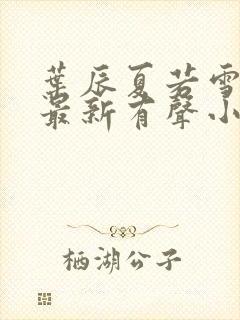 葉辰夏若雪
最新有聲小
栖湖公子